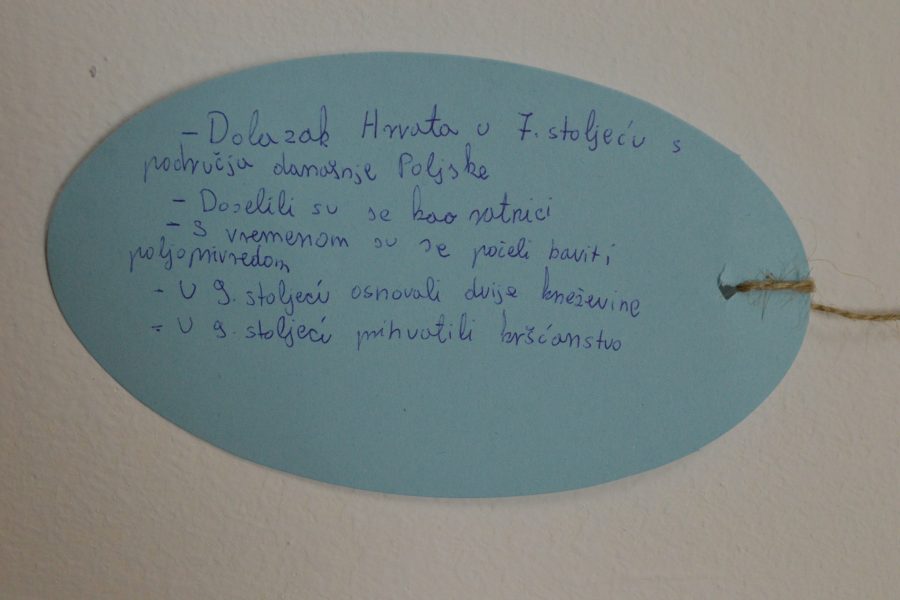 - Dolazak Hrvata u 7. stoljeću s
područja današnje Poljske
- Doselili su se kao ratnici
- S vremenom su se počeli baviti
poljoprivredom
- U 9. stoljeću osnovali dvije kneževine
- U 9. stoljeću prihvatili kršćanstvo